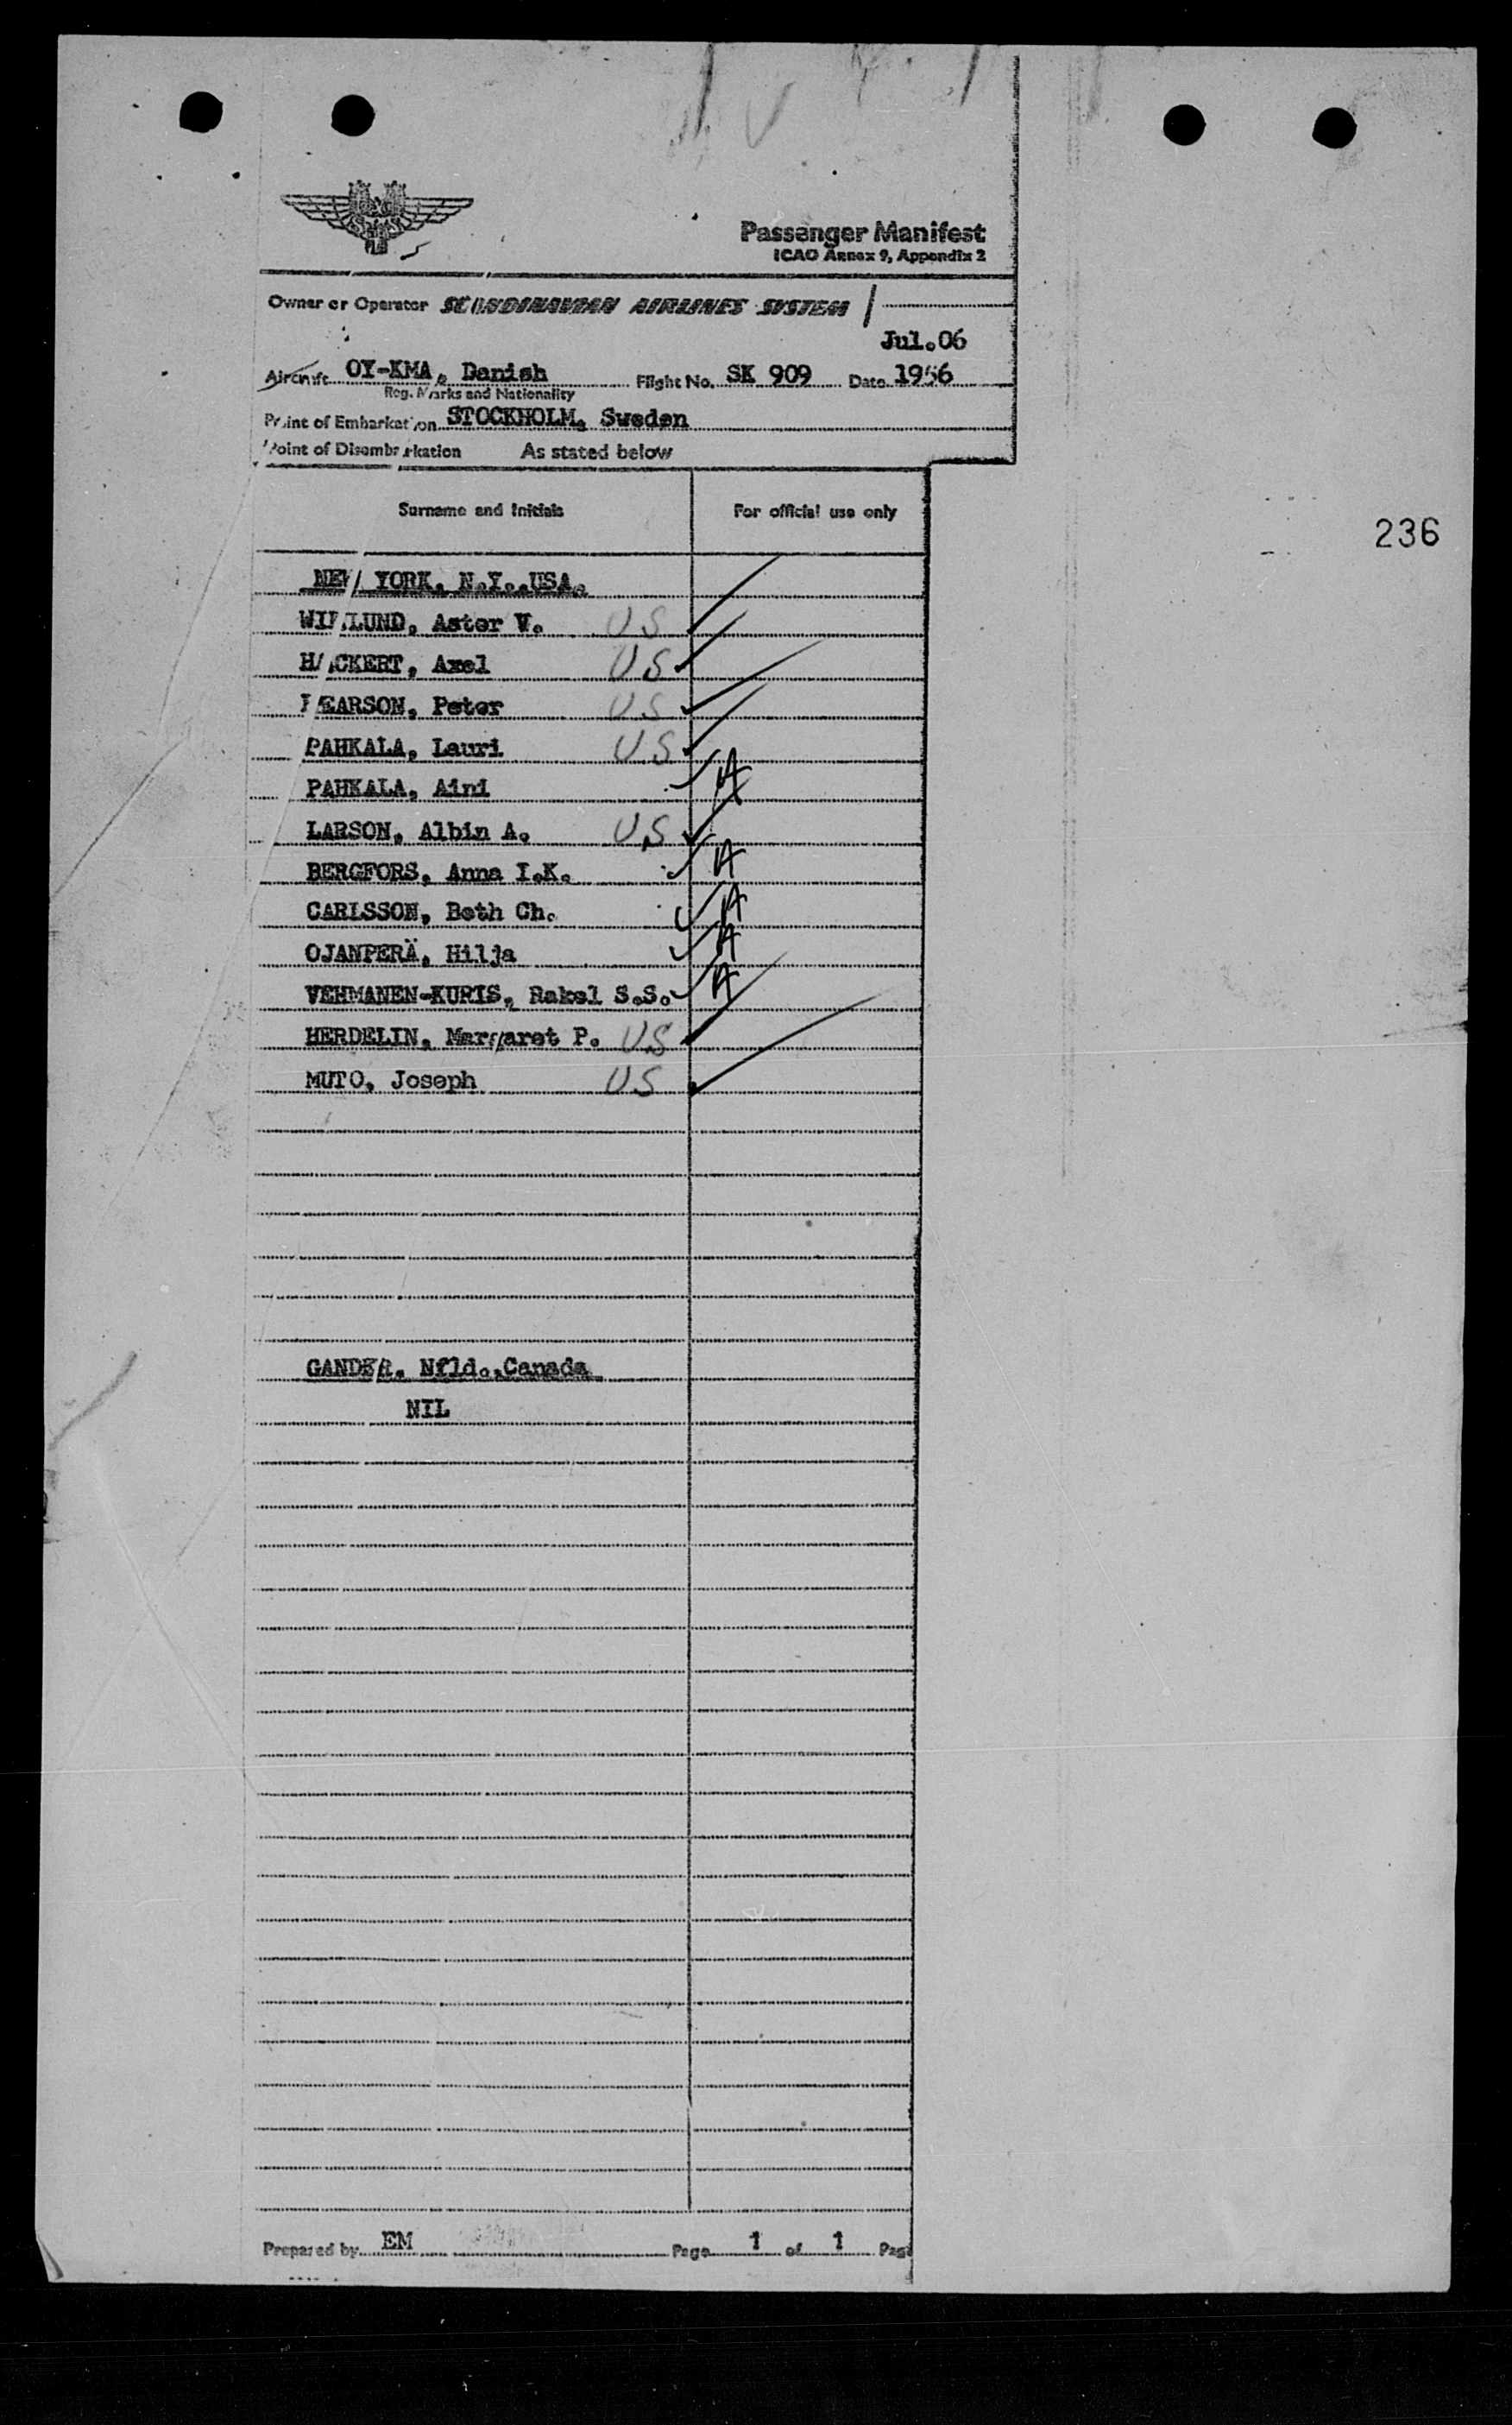 Passenger Manifest
ICAO Annex 9, Appendix 2
Owner or Operator SCANDINAVIAN AIRLINES SYSTEM
Jul.06
Aircraft OY-KMA, Danish Flight No. SK 909 Date 1956
Reg. Marks and Nationality
Point of Embarkation STOCKHOLM, Sweden
Point of Disembarkation As stated below
Surname and Initials For official use only
236
NEW YORK, N.Y.,USA.
Aster V. US
Axel US
PEARSON, Peter US
PAHKALA, Lauri US
PAHKALA, Aini A
LARSON, Albin A. US
BERGFORS, Anna I.K. A
CARLSSON, Beth Ch. A
OJANPERÄ, Hilja A
VEHMANEN-KURIS, Rakel S.S. A
HERDELIN, Margaret P. US
MUTO, Joseph US
GANDER, Nfld.,Canada
NIL
Prepared by EM Page 1 of 1 Page